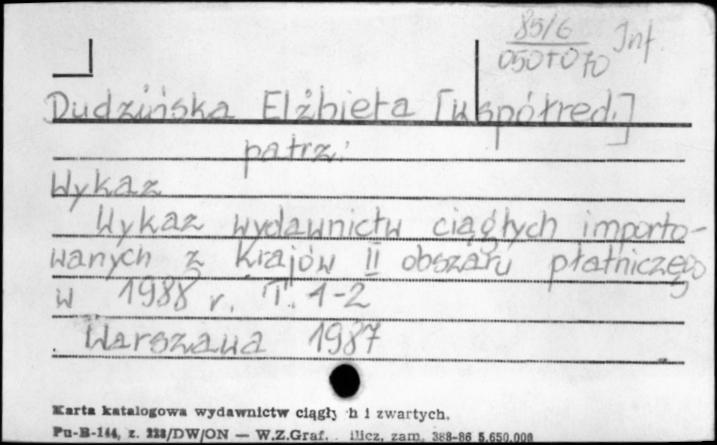 85/6 Inf.
050+070
Dudzińska Elżbieta [współred.]
patrz:
Wykaz
Wykaz wydawnictw ciągłych importo-
wanych z krajów II obszaru płatniczego
w 1988 r. T. 1-2
Warszawa 1987
Karta katalogowa wydawnictw ciągły h i zwartych.
Pu-B-144, z. 228/DW/ON — W.Z.Graf. zam. 388-86 5.650.000